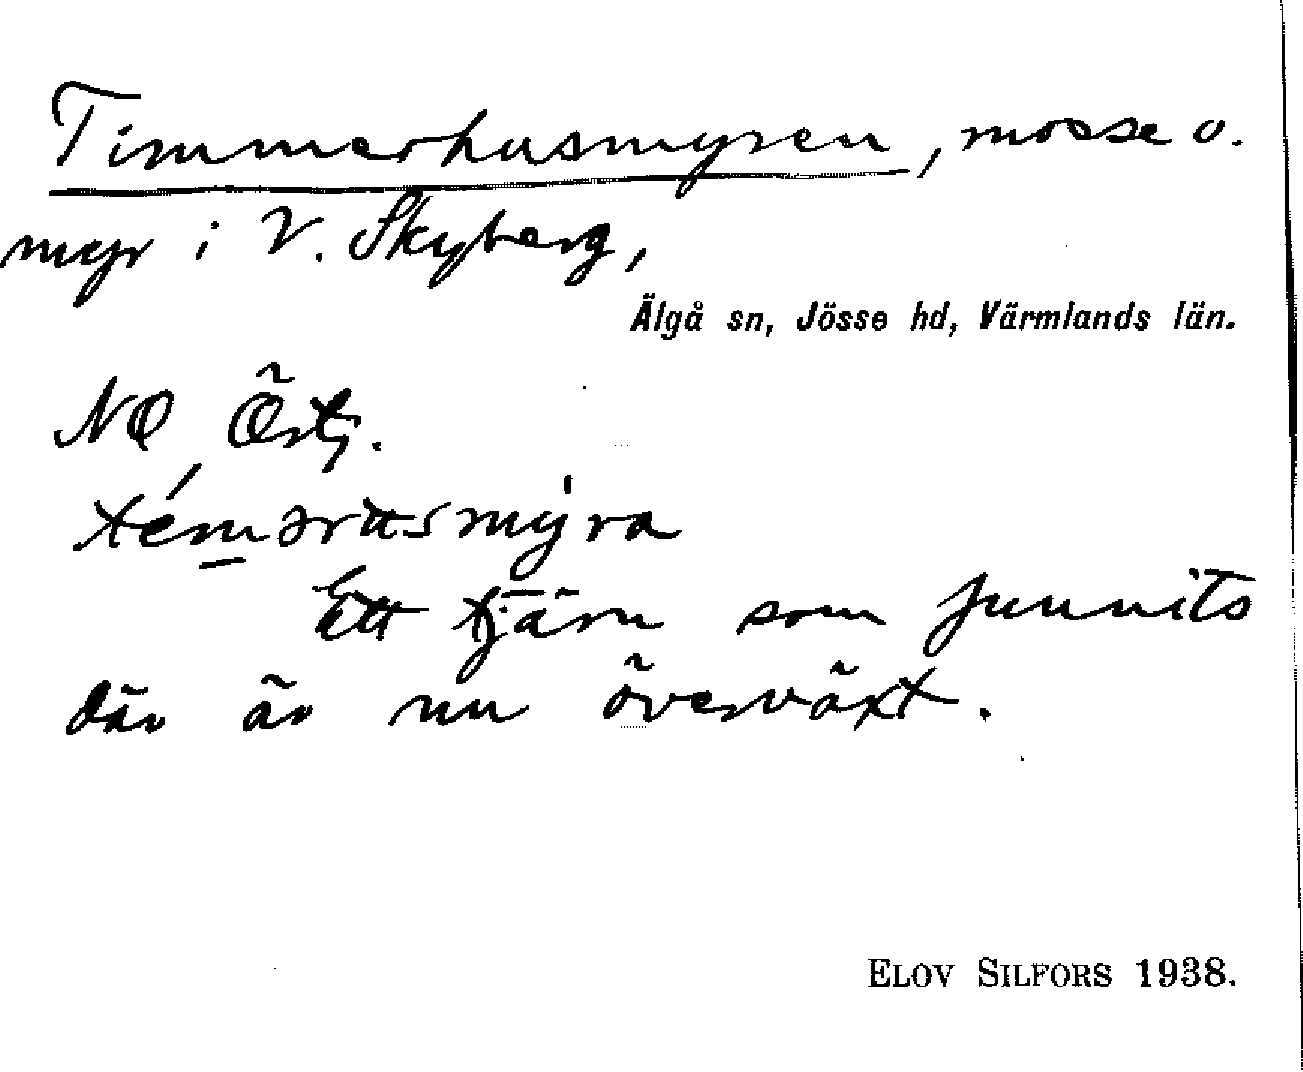 Timmerhusmyren, mosse o.
myr i V. Skyberg,
Älgå sn, Jösse hd, Värmlands län.
NO Östj.
Ett tjärn som funnits
där är nu överväxt.
ELOV SILFORS 1938.